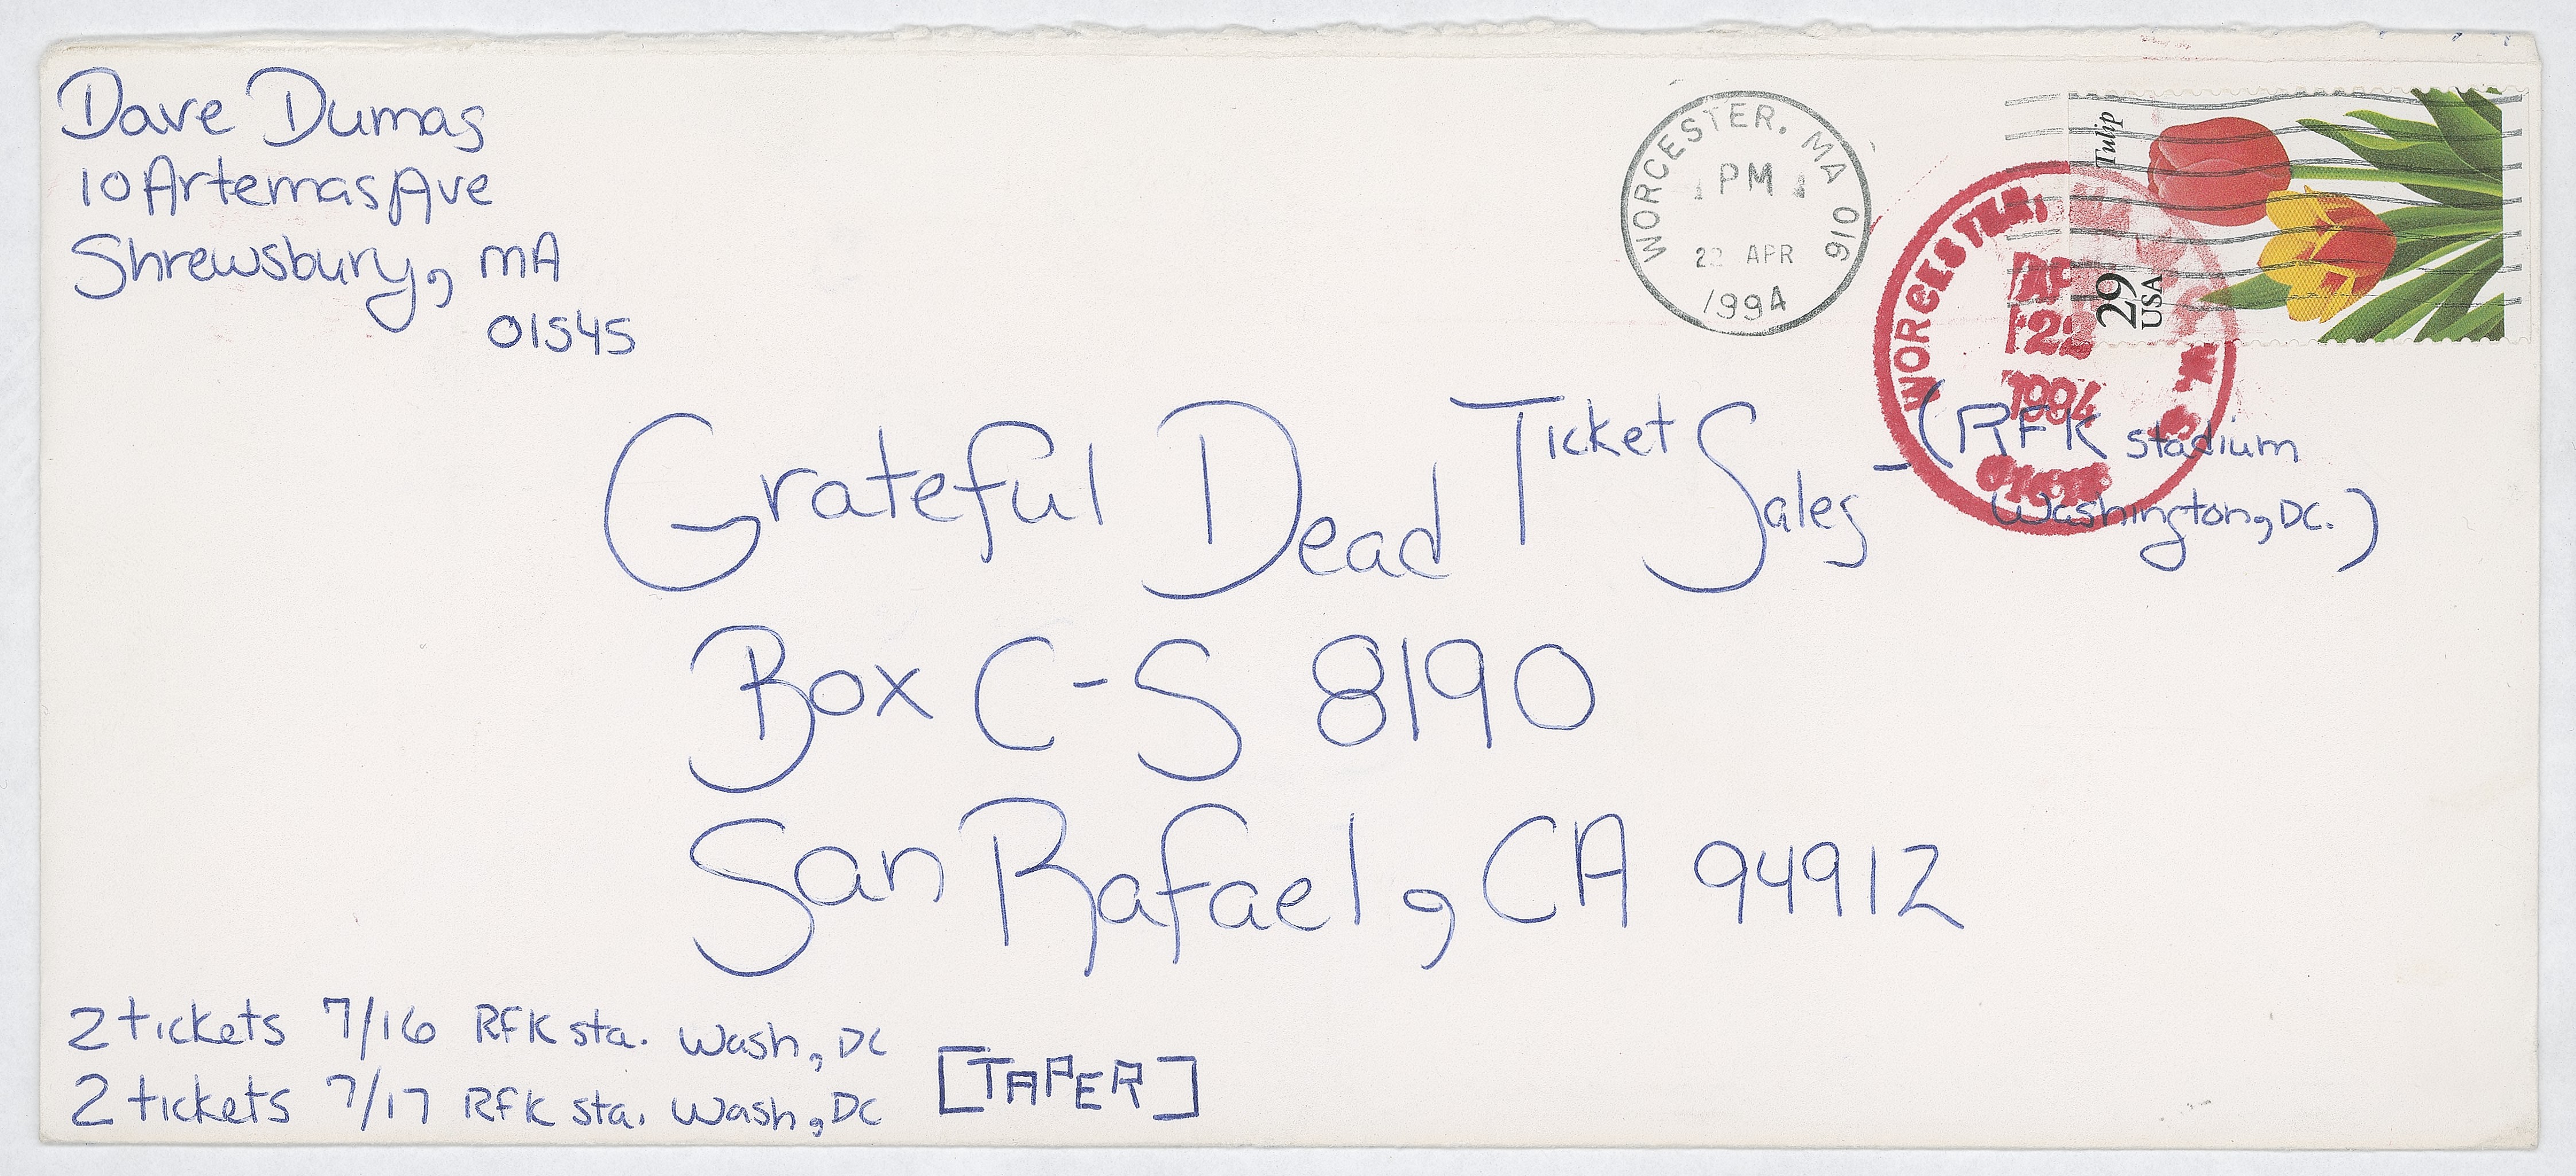 Dave Dumas
10 Artemas Ave
Shrewsbury, MA
01545
WORCESTER, MA 016
PM
22 APR
1994
WORCESTER,
22
1994
Tulip
29
USA
Grateful Dead Ticket Sales - (RFK Stadium
Washington, DC.)
Box C-S 8190
San Rafael, CA 94912
2 tickets 7/16 RFK sta. Wash, DC
2 tickets 7/17 RFK sta. Wash, DC
[TAPER]